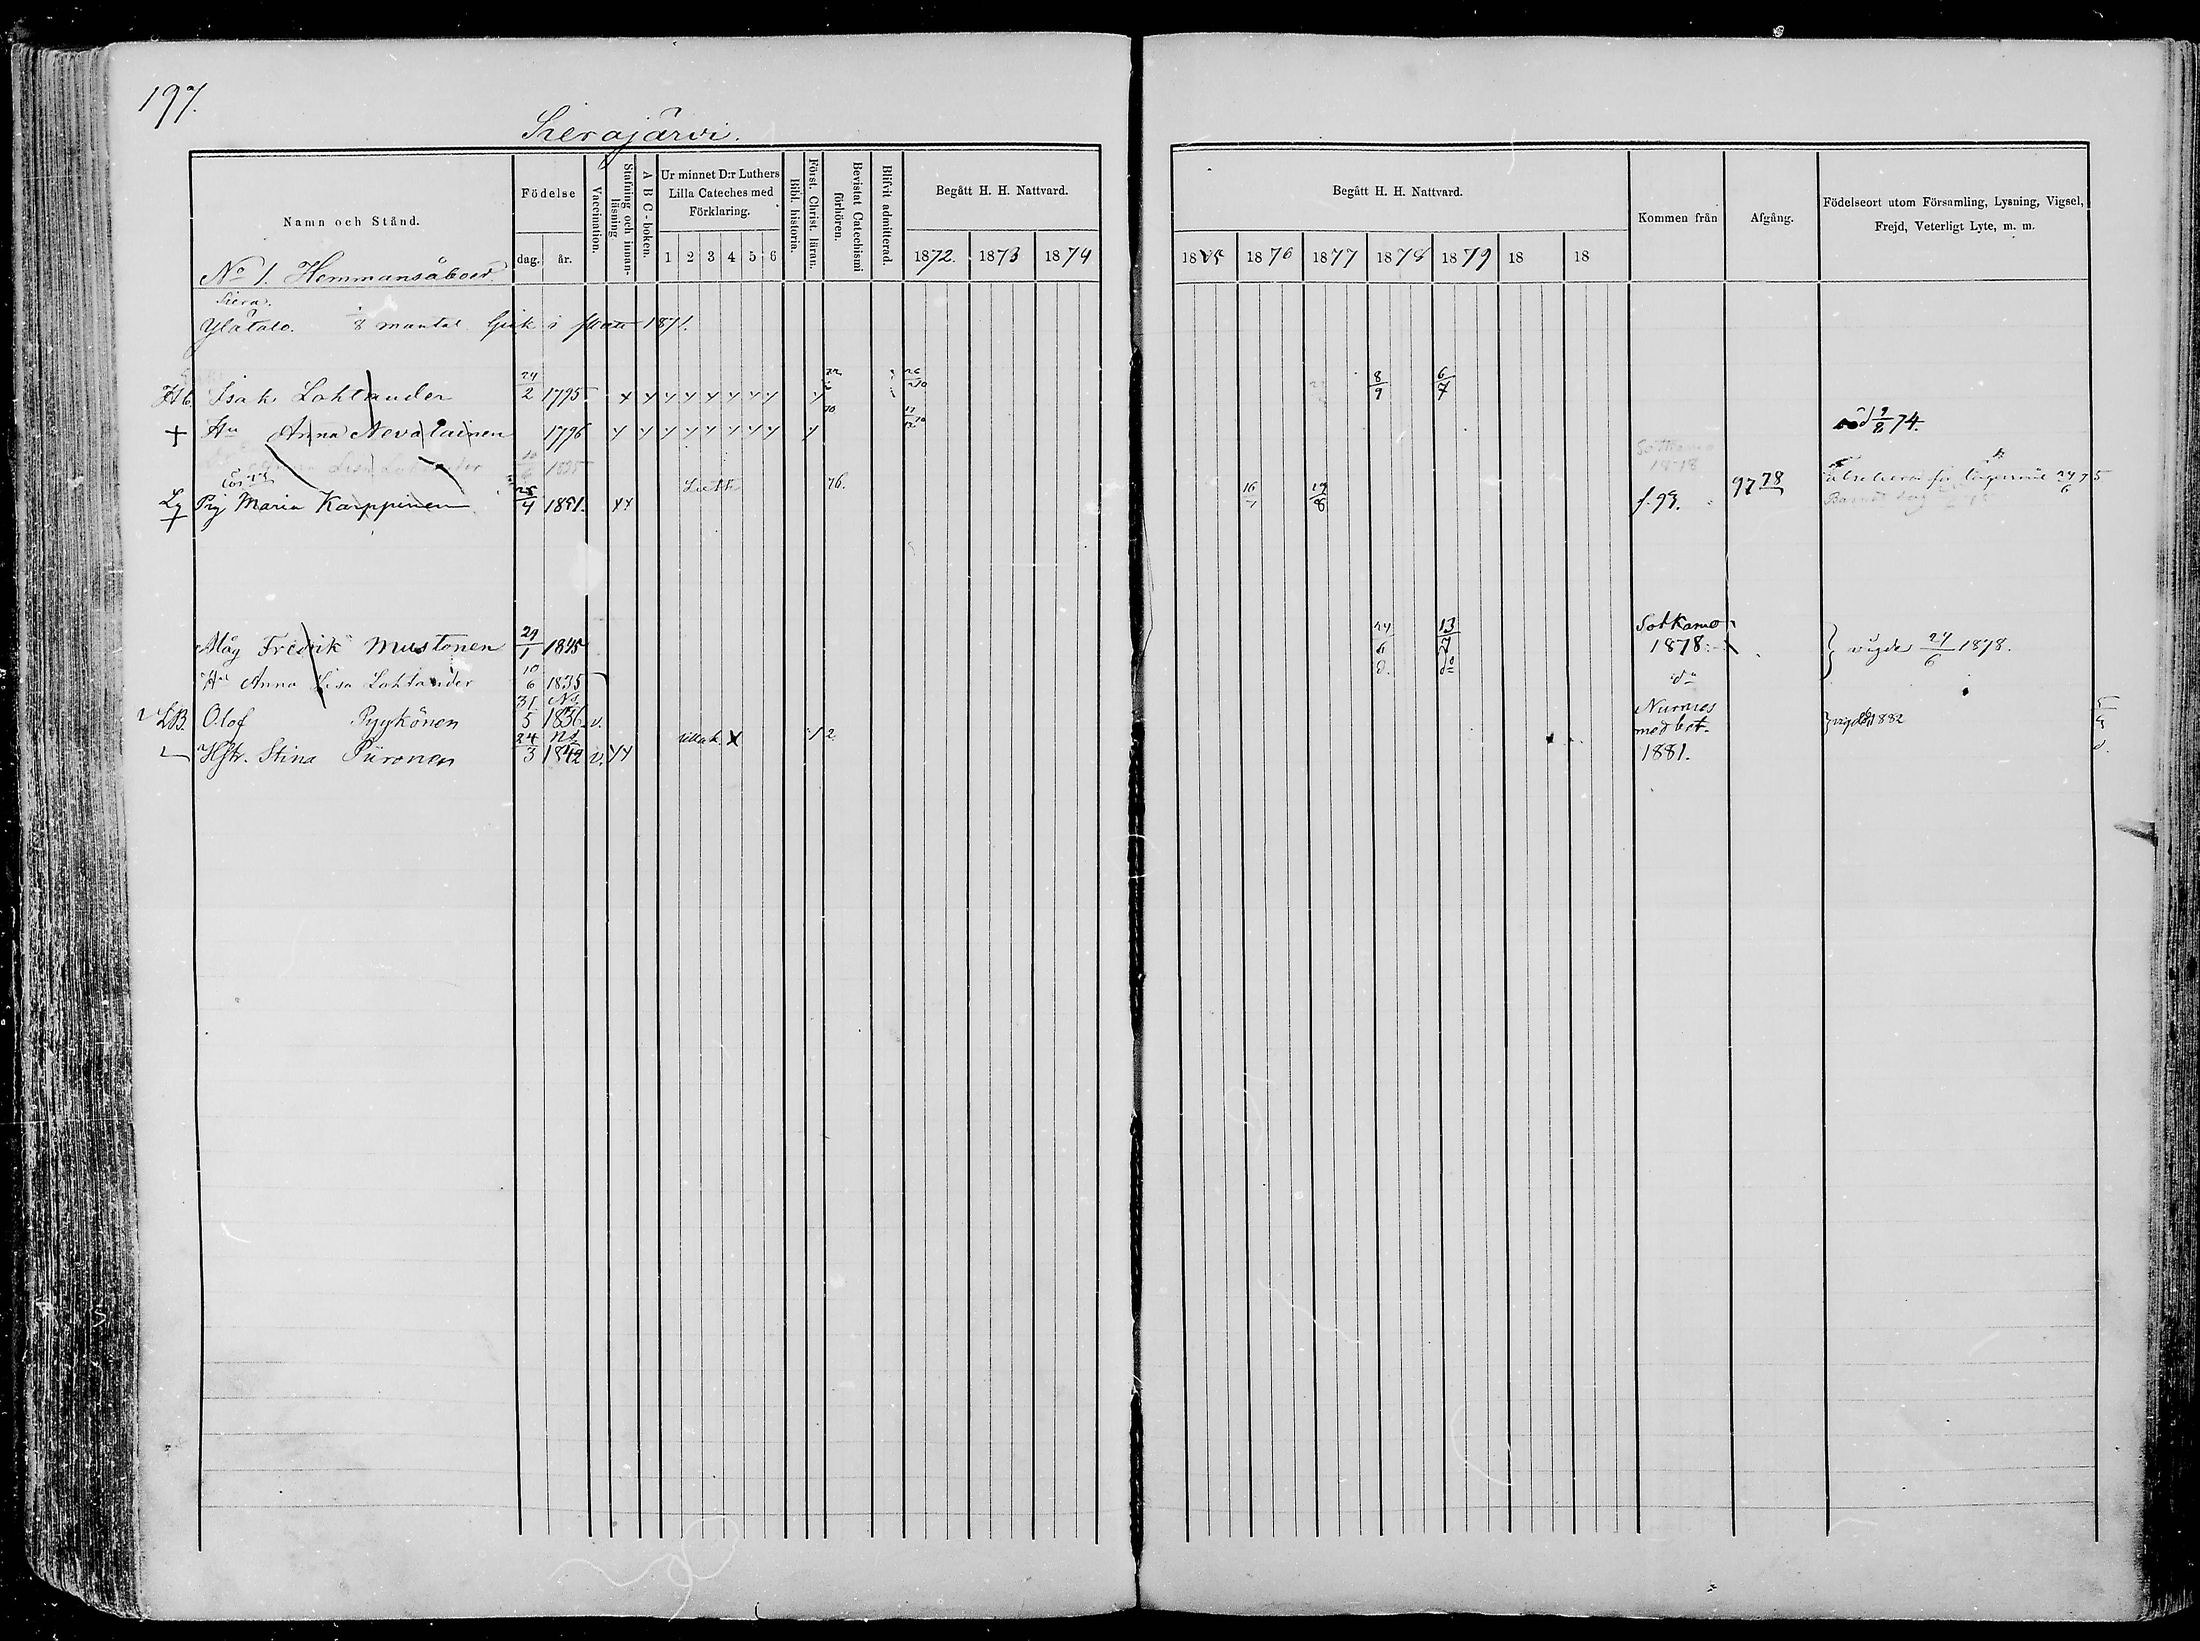 197.
Sierajärvi.
Namn och Stånd.
Födelse
dag.
år.
Vaccination.
Stafning och innan-läsning
A B C-boken.
Ur minnet D:r Luthers
Lilla Cateches med
Förklaring.
1 2 3 4 5 6
Bibl. historia.
Först. Christ. läran.
Bevistat Catechismi förhören.
Blifvit admitterad.
Begått H. H. Nattvard.
1872. 1873 1874
Begått H. H. Nattvard.
1875 1876 1877 1878 1879 18 18
Kommen från
Afgång.
Födelseort utom Församling, Lysning, Vigsel,
Frejd, Veterligt Lyte, m. m.
No 1. Hemmansåboer.
Siera.
Ylätalo. 1/8 mantal 1871.
Hb. Isak Lohtander 24/2 1795 8/9 6/7
+ Hu Anna Nevalainen 1796 död 9/8 74.
Anna Lisa Lohtander 10/6 1835 Sotkamo 1878
Lg Pig Maria Karppinen 25/4 1851. Luth 76. 16/7 19/8 f. 93. 97 78
Måg Fredrik Mustonen 29/1 1845 24/6 13/7 Sotkamo 1878. vigde 24/6 1878.
Hu Anna Lisa Lohtander 10/6 1835 d. do do
LB. Olof Pyykönen 31/5 Ns. 1836 v. Nurmes med bet. 1881. 1882
Hstr. Stina Piironen 24/3 Ns 1842 v. lilla k. X